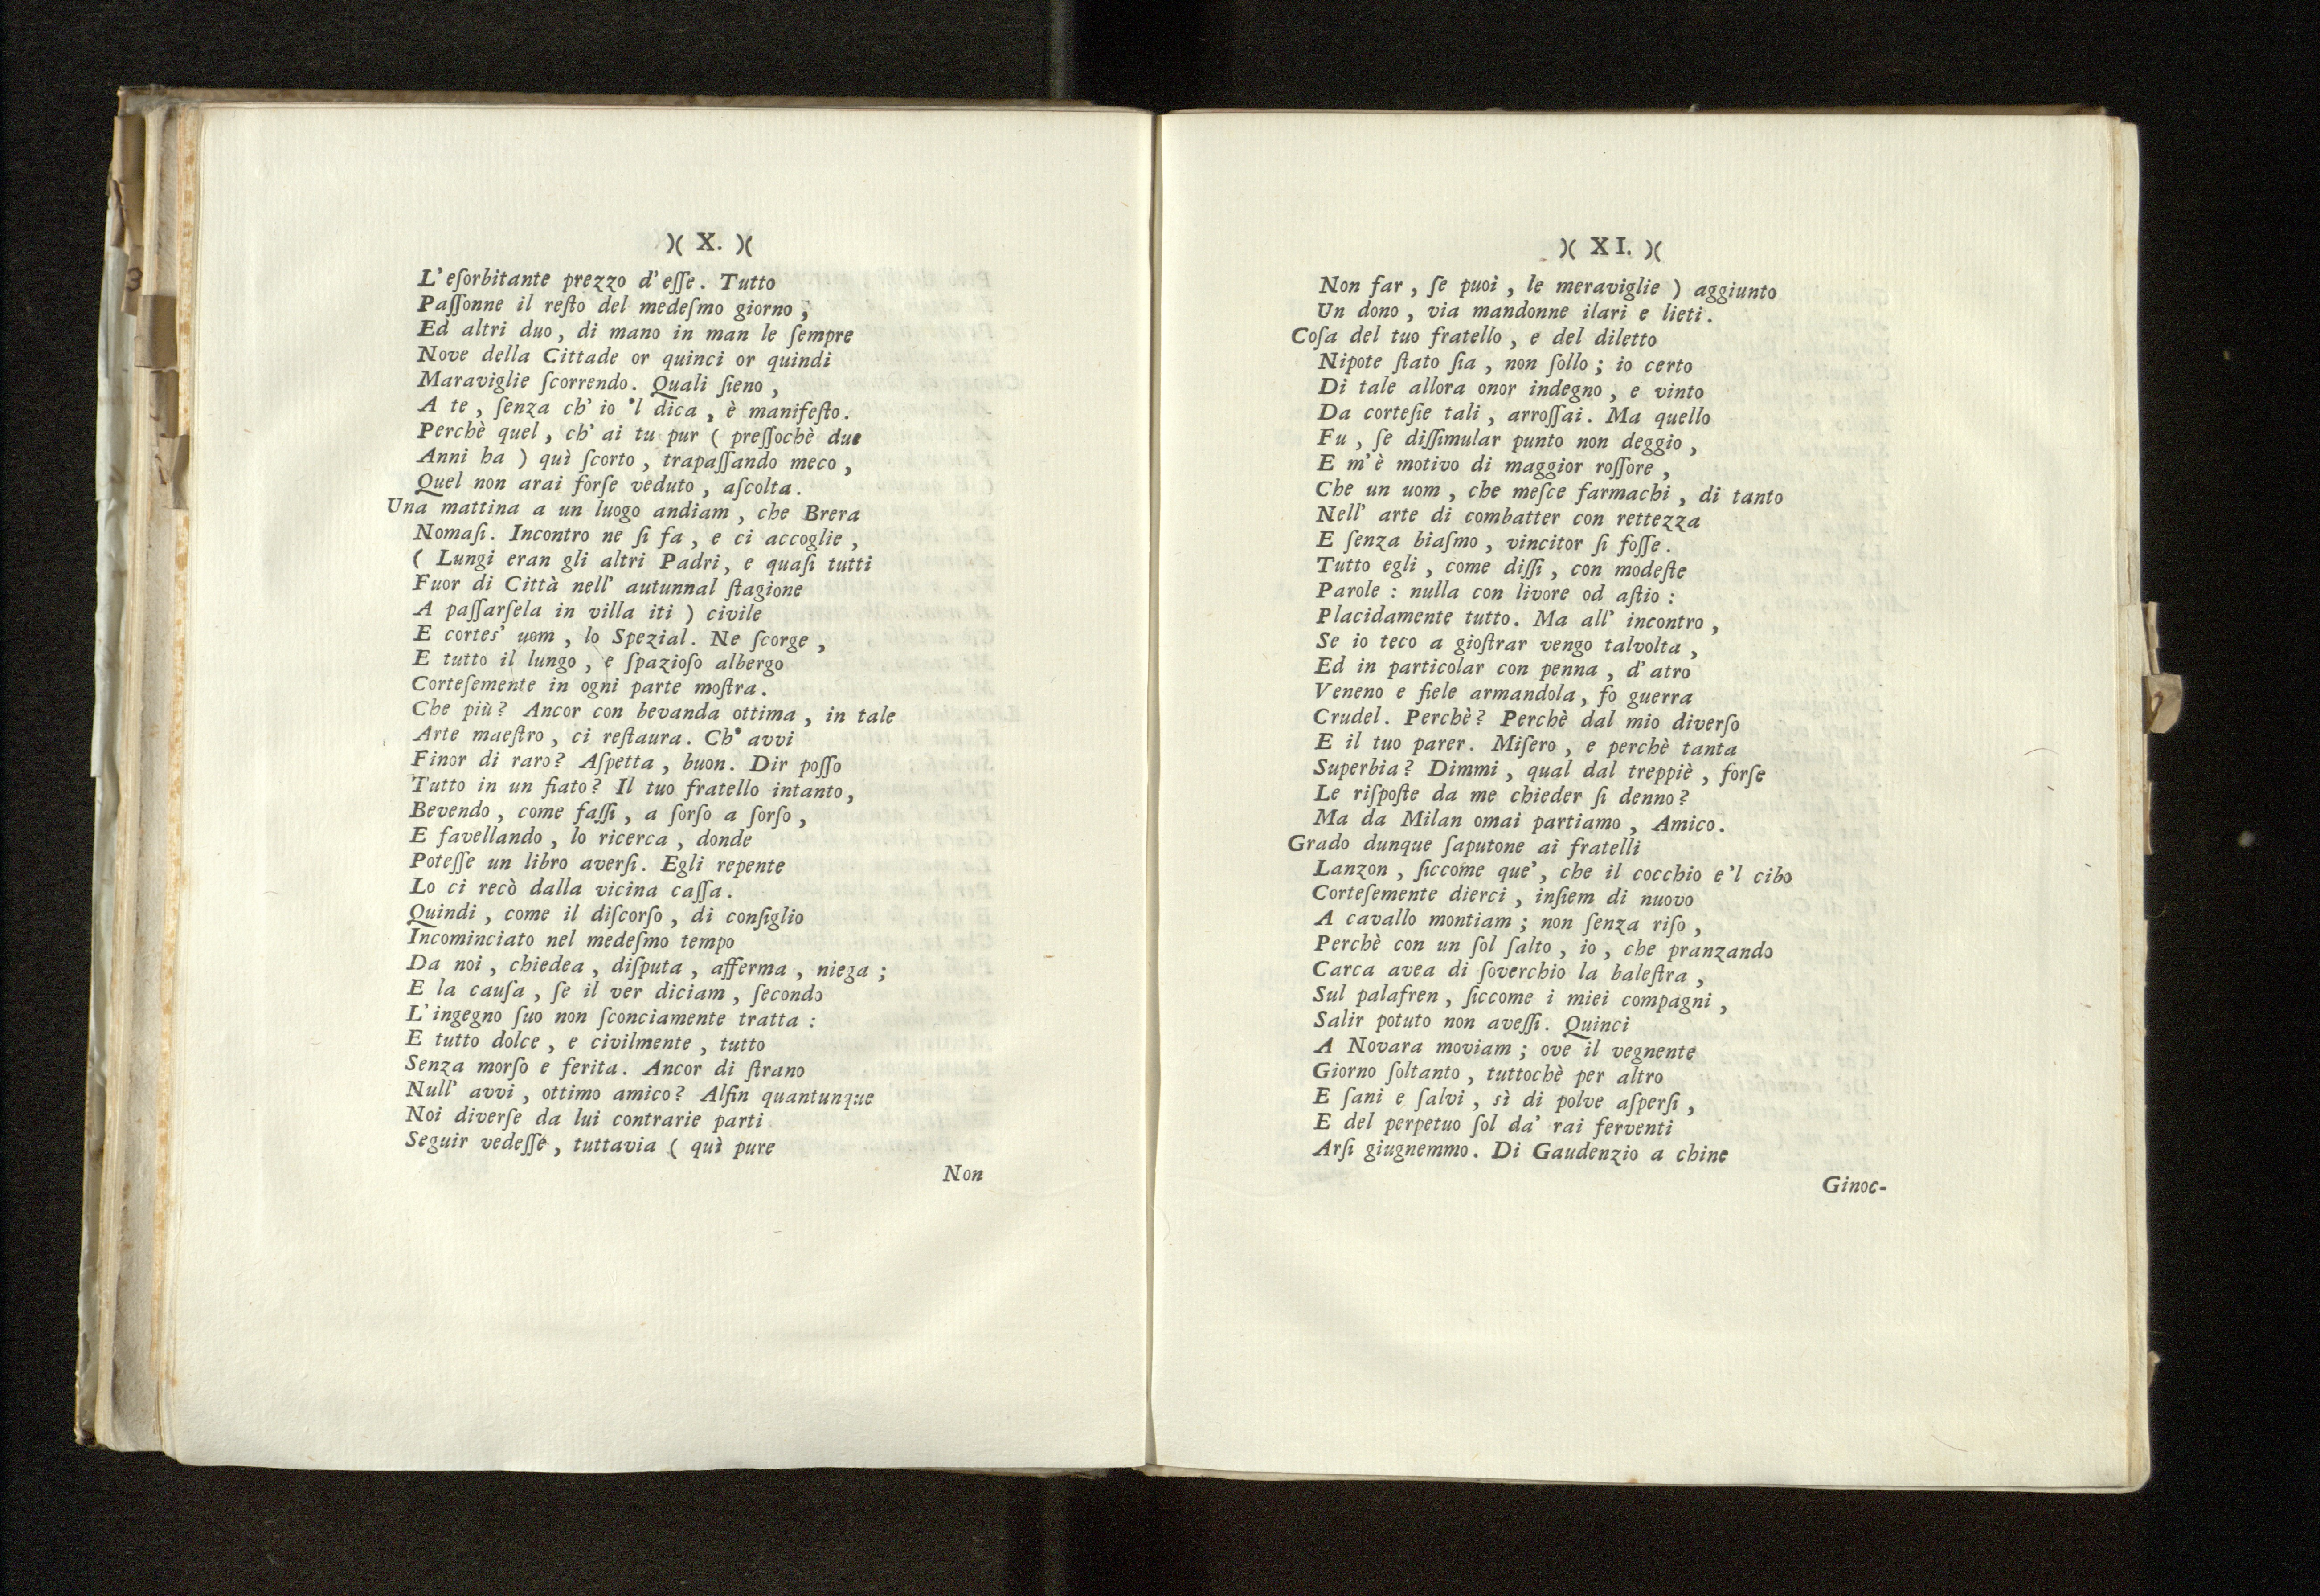 )( X. )(
L'eſorbitante prezzo d'eſſe. Tutto
Paſſonne il reſto del medeſmo giorno;
Ed altri duo, di mano in man le ſempre
Nove della Cittade or quinci or quindi
Maraviglie ſcorrendo. Quali ſieno,
A te, ſenza ch'io 'l dica, è manifeſto.
Perchè quel, ch'ai tu pur ( preſſochè due
Anni ha ) quì ſcorto, trapaſſando meco,
Quel non arai forſe veduto, aſcolta.
Una mattina a un luogo andiam, che Brera
Nomaſi. Incontro ne ſi fa, e ci accoglie,
( Lungi eran gli altri Padri, e quaſi tutti
Fuor di Città nell' autunnal ſtagione
A paſſarſela in villa iti ) civile
E cortes' uom, lo Spezial. Ne ſcorge,
E tutto il lungo, e ſpazioſo albergo
Corteſemente in ogni parte moſtra.
Che più? Ancor con bevanda ottima, in tale
Arte maeſtro, ci reſtaura. Ch' avvi
Finor di raro? Aſpetta, buon. Dir poſſo
Tutto in un fiato? Il tuo fratello intanto,
Bevendo, come faſſi, a ſorſo a ſorſo,
E favellando, lo ricerca, donde
Poteſſe un libro averſi. Egli repente
Lo ci recò dalla vicina caſſa.
Quindi, come il diſcorſo, di conſiglio
Incominciato nel medeſmo tempo
Da noi, chiedea, diſputa, afferma, niega;
E la cauſa, ſe il ver diciam, ſecondo
L'ingegno ſuo non ſconciamente tratta:
E tutto dolce, e civilmente, tutto
Senza morſo e ferita. Ancor di ſtrano
Null' avvi, ottimo amico? Alfin quantunque
Noi diverſe da lui contrarie parti
Seguir vedeſſe, tuttavia ( quì pure
Non
)( XI. )(
Non far, ſe puoi, le meraviglie ) aggiunto
Un dono, via mandonne ilari e lieti.
Coſa del tuo fratello, e del diletto
Nipote ſtato ſia, non ſollo; io certo
Di tale allora onor indegno, e vinto
Da corteſie tali, arroſſai. Ma quello
Fu, ſe diſſimular punto non deggio,
E m'è motivo di maggior roſſore,
Che un uom, che meſce farmachi, di tanto
Nell' arte di combatter con rettezza
E ſenza biaſmo, vincitor ſi foſſe.
Tutto egli, come diſſi, con modeſte
Parole: nulla con livore od aſtio:
Placidamente tutto. Ma all' incontro,
Se io teco a gioſtrar vengo talvolta,
Ed in particolar con penna, d'atro
Veneno e fiele armandola, fo guerra
Crudel. Perchè? Perchè dal mio diverſo
E il tuo parer. Miſero, e perchè tanta
Superbia? Dimmi, qual dal treppiè, forſe
Le riſpoſte da me chieder ſi denno?
Ma da Milan omai partiamo, Amico.
Grado dunque ſaputone ai fratelli
Lanzon, ſiccome que', che il cocchio e'l cibo
Corteſemente dierci, inſiem di nuovo
A cavallo montiam; non ſenza riſo,
Perchè con un ſol ſalto, io, che pranzando
Carca avea di ſoverchio la baleſtra,
Sul palafren, ſiccome i miei compagni,
Salir potuto non aveſſi. Quinci
A Novara moviam; ove il vegnente
Giorno ſoltanto, tuttochè per altro
E ſani e ſalvi, sì di polve aſperſi,
E del perpetuo ſol da' rai ferventi
Arſi giugnemmo. Di Gaudenzio a chine
Ginoc-